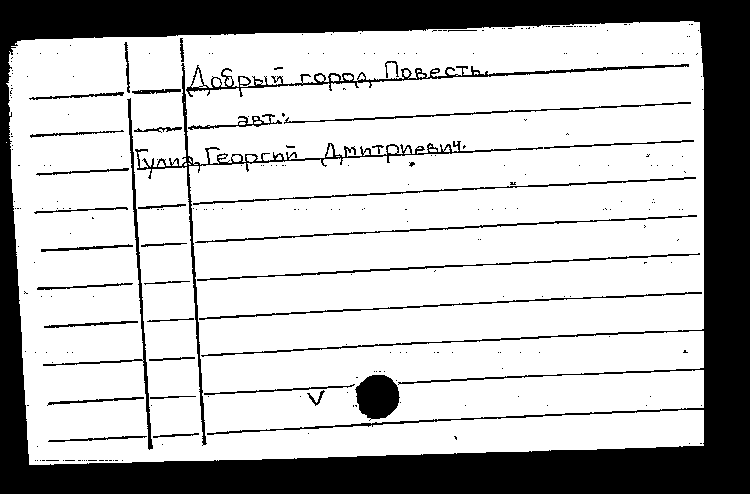 Добрый город. Повесть.
авт.:
Гулиа, Георгий Дмитриевич.
V